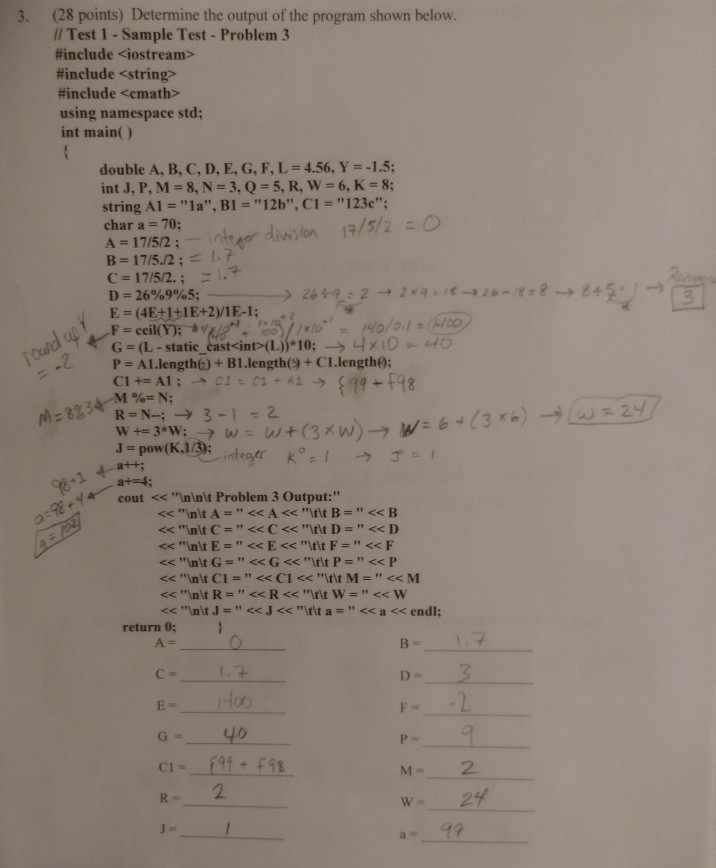 3. (28 points) Determine the output of the program shown below.
// Test 1 - Sample Test - Problem 3
#include <iostream>
#include <string>
#include <cmath>
using namespace std;
int main( )
{
double A, B, C, D, E, G, F, L = 4.56, Y = -1.5;
int J, P, M = 8, N = 3, Q = 5, R, W = 6, K = 8;
string A1 = "1a", B1 = "12b", C1 = "123c";
char a = 70;
A = 17/5/2 ; - integer division 17/5/2 = 0
B = 17/5./2 ; = 1.7
C = 17/5/2. ; = 1.7
D = 26%9%5; → 26%9 = 2 → 2x9 = 18 → 26-18 = 8 → 8%5 = → 3
E = (4E+1+1E+2)/1E-1;
F = ceil(Y); /1x10⁻¹ = 140/0.1 = 1400
round up Y = -2
G = (L - static_cast<int>(L))*10; → 4x10 = 40
P = A1.length(2) + B1.length(3) + C1.length(4);
C1 += A1 ; → C1 = C1 + A1 → {99 + f98
M %= N;
M = 8%3
R = N--; → 3 - 1 = 2
W += 3*W; → W = W+(3xW) → W = 6 + (3x6) → W = 24
J = pow(K,1/3); integer K⁰ = 1 → J = 1
a++; 98+1
a+=4; a=98+4
a = 102
cout << "\n\n\t Problem 3 Output:"
<< "\n\t A = " << A << "\t\t B = " << B
<< "\n\t C = " << C << "\t\t D = " << D
<< "\n\t E = " << E << "\t\t F = " << F
<< "\n\t G = " << G << "\t\t P = " << P
<< "\n\t C1 = " << C1 << "\t\t M = " << M
<< "\n\t R = " << R << "\t\t W = " << W
<< "\n\t J = " << J << "\t\t a = " << a << endl;
return 0; }
A = 0 B = 1.7
C = 1.7 D = 3
E = 1400 F = -2
G = 40 P = 9
C1 = {99 + f98 M = 2
R = 2 W = 24
J = 1 a = 99